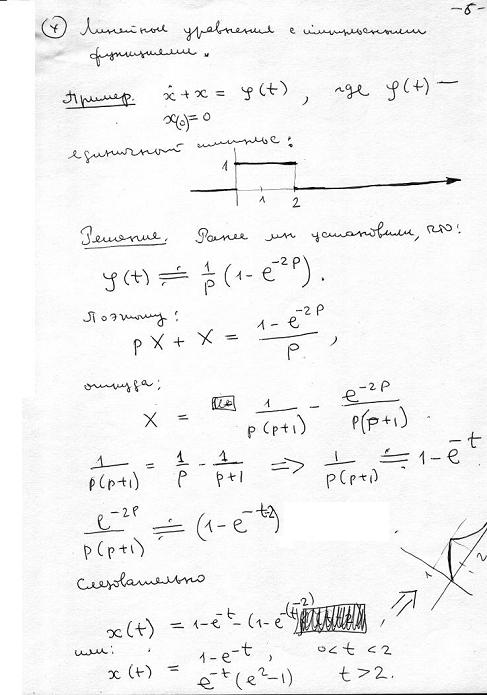 -6-
④ Линейные уравнения с импульсными
функциями.
Пример. ẋ + x = φ(t), где φ(t) —
x(0) = 0
единичный импульс:
1
1 2
Решение. Ранее мы установили, что:
φ(t) ≓ 1/p (1 - e^{-2p}).
Поэтому:
pX + X = (1 - e^{-2p})/p,
откуда:
X = 1/(p(p+1)) - e^{-2p}/(p(p+1)).
1/(p(p+1)) = 1/p - 1/(p+1) => 1/(p(p+1)) ≓ 1 - e^{-t}
e^{-2p}/(p(p+1)) ≓ (1 - e^{-t-2})
1 2
Следовательно
x(t) = 1 - e^{-t} - (1 - e^{-(t-2)}) =>
или:
x(t) = 1 - e^{-t}, 0 < t < 2
e^{-t}(e^2 - 1) t > 2.